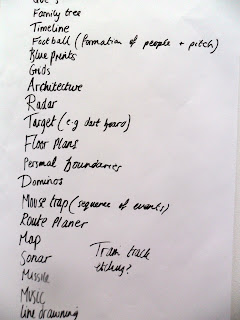 Family tree
Timeline
Football (formation of people + pitch)
Blue prints
Grids
Architecture
Radar
Target (e.g dart board)
Floor Plans
Personal Boundaries
Dominos
Mouse trap (sequence of events)
Route Planer
Map
Sonar
Tram track
Missile
Music
line drawning